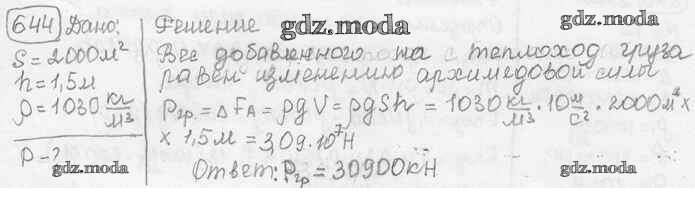 644 Дано:
S = 2000 м²
h = 1,5 м
ρ = 1030 кг/м³
P - ?
Решение
gdz.moda
Вес добавленного на с теплоход груза
равен изменению архимедовой силы
Pгр. = Δ FA = ρgV = ρgSh = 1030 кг/м³ · 10 м/с² · 2000 м² ×
× 1,5 м = 3,09 · 10⁷ Н
Ответ: Pгр = 30900 кН
gdz.moda
gdz.moda